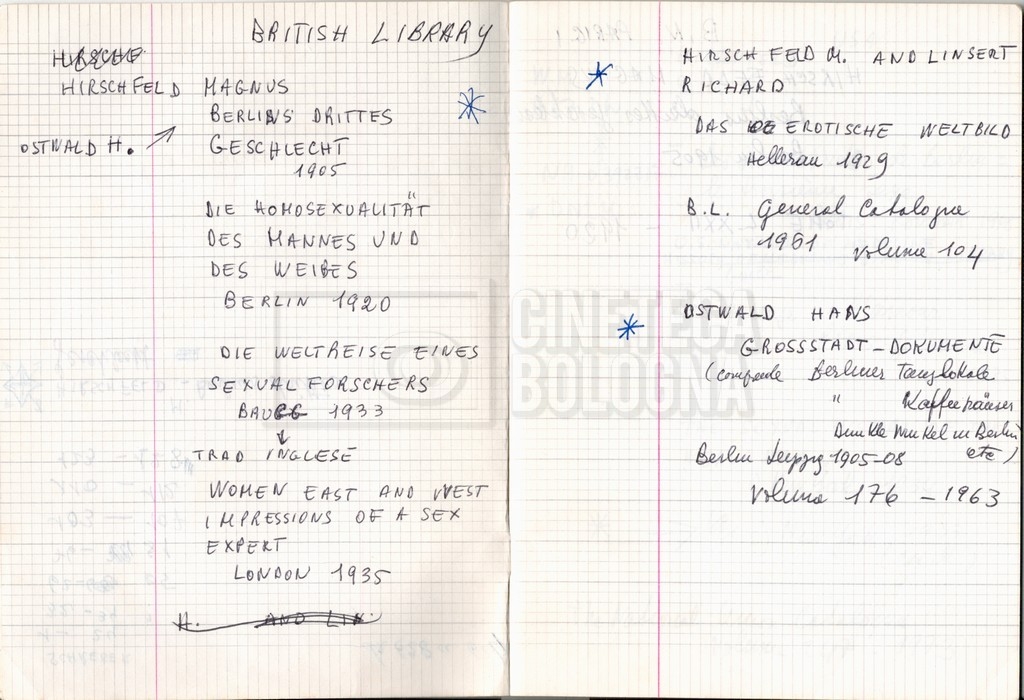 BRITISH LIBRARY
HIRSCHFELD MAGNUS
BERLINS DRITTES
OSTWALD H. GESCHLECHT
1905
DIE HOMOSEXUALITÄT
DES MANNES UND
DES WEIBES
BERLIN 1920
DIE WELTREISE EINES
SEXUALFORSCHERS
1933
TRAD INGLESE
WOMEN EAST AND WEST
IMPRESSIONS OF A SEX
EXPERT
LONDON 1935
H. AND LIN.
HIRSCHFELD M. AND LINSERT
RICHARD
DAS EROTISCHE WELTBILD
Hellerau 1929
B.L. General Catalogue
1961 volume 104
OSTWALD HANS
GROSSSTADT-DOKUMENTE
(comprende Berliner Tanzlokale
" Kaffeehäuser
Dunkle Winkel in Berlin
etc)
Berlin Leipzig 1905-08
volume 176 - 1963
CINETECA
BOLOGNA